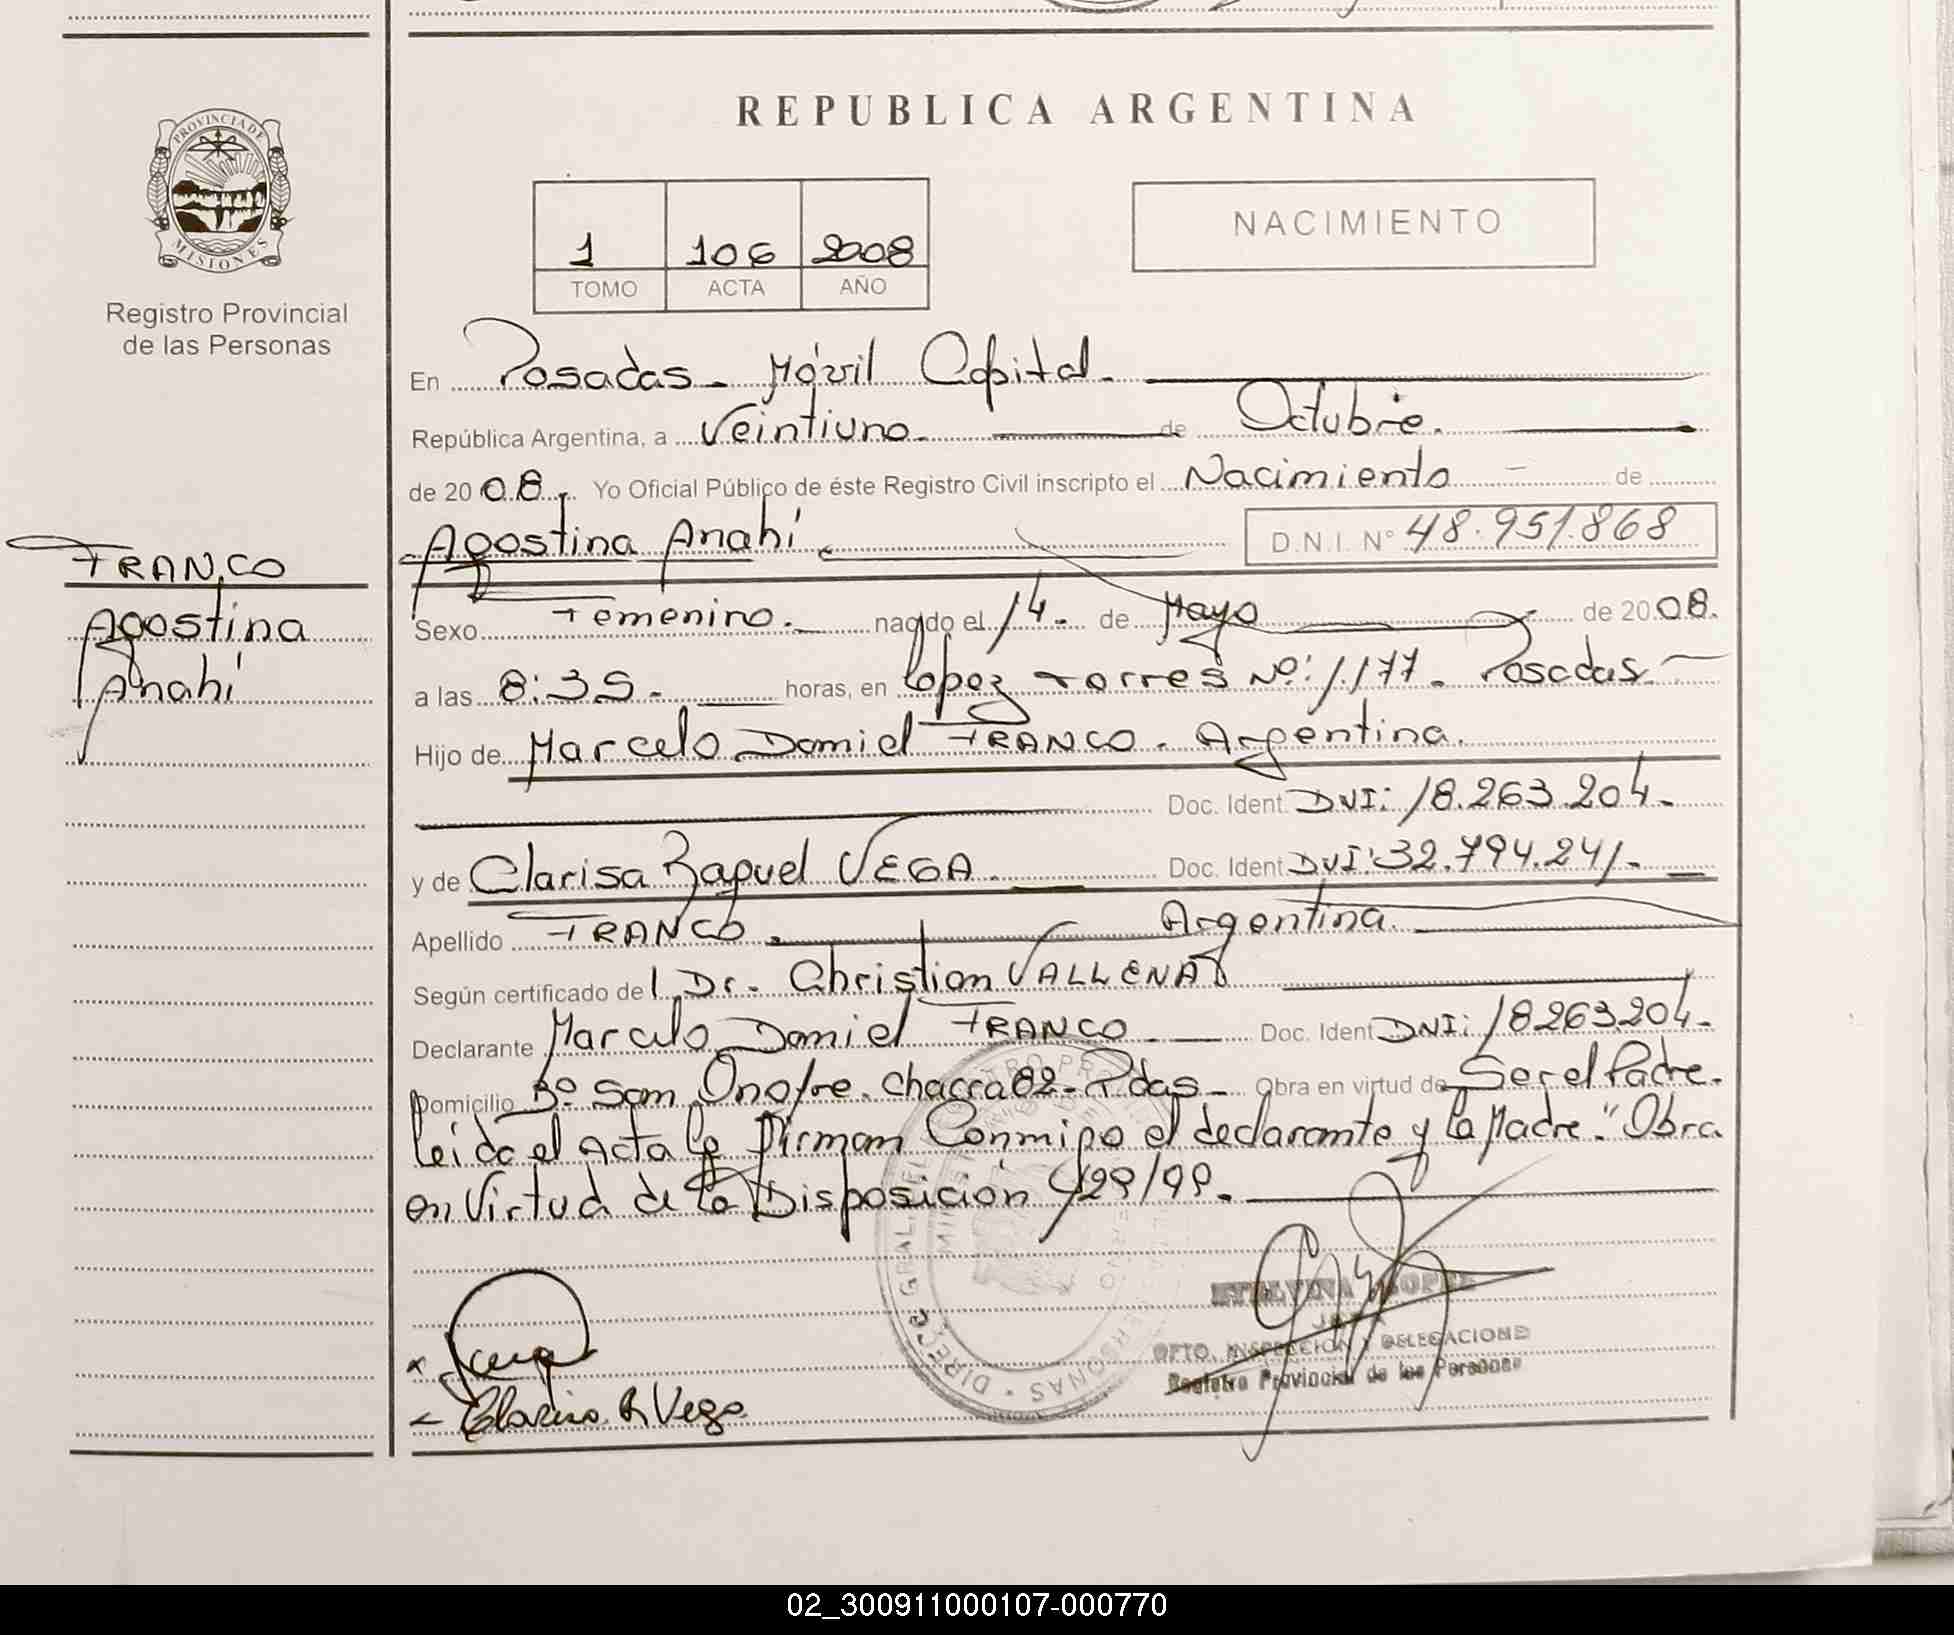 REPUBLICA ARGENTINA
PROVINCIA DE
MISIONES
Registro Provincial
de las Personas
1 106 2008
TOMO ACTA AÑO
NACIMIENTO
En Posadas - Móvil Capital.
República Argentina, a Veintiuno. de Octubre.
de 2008. Yo Oficial Público de éste Registro Civil inscripto el Nacimiento de
Agostina Anahí. D.N.I. Nº 48.951.868
FRANCO
Agostina
Anahí
Sexo Femenino. nacido el 14. de Mayo de 2008.
a las 8:35. horas, en Lopez Torres Nº: 1177. Posadas.
Hijo de Marcelo Daniel FRANCO. Argentina.
Doc. Ident. DNI: 18.263.204.
y de Clarisa Raquel VEGA. Doc. Ident. DNI: 32.794.241.
Apellido FRANCO. Argentina.
Según certificado del Dr. Christian VALLENAS
Declarante Marcelo Daniel FRANCO Doc. Ident. DNI: 18263204.
Domicilio Bº San Onofre. Chacra 82 - Pdas - Obra en virtud de Ser el Padre.
leida el Acta la firman Conmigo el declarante y la Madre. "Obra
en Virtud de la Disposición 429/99.
JEFA
DPTO. INSPECCION Y DELEGACIONES
Registro Provincial de las Personas
Clarisa R Vega
02_300911000107-000770